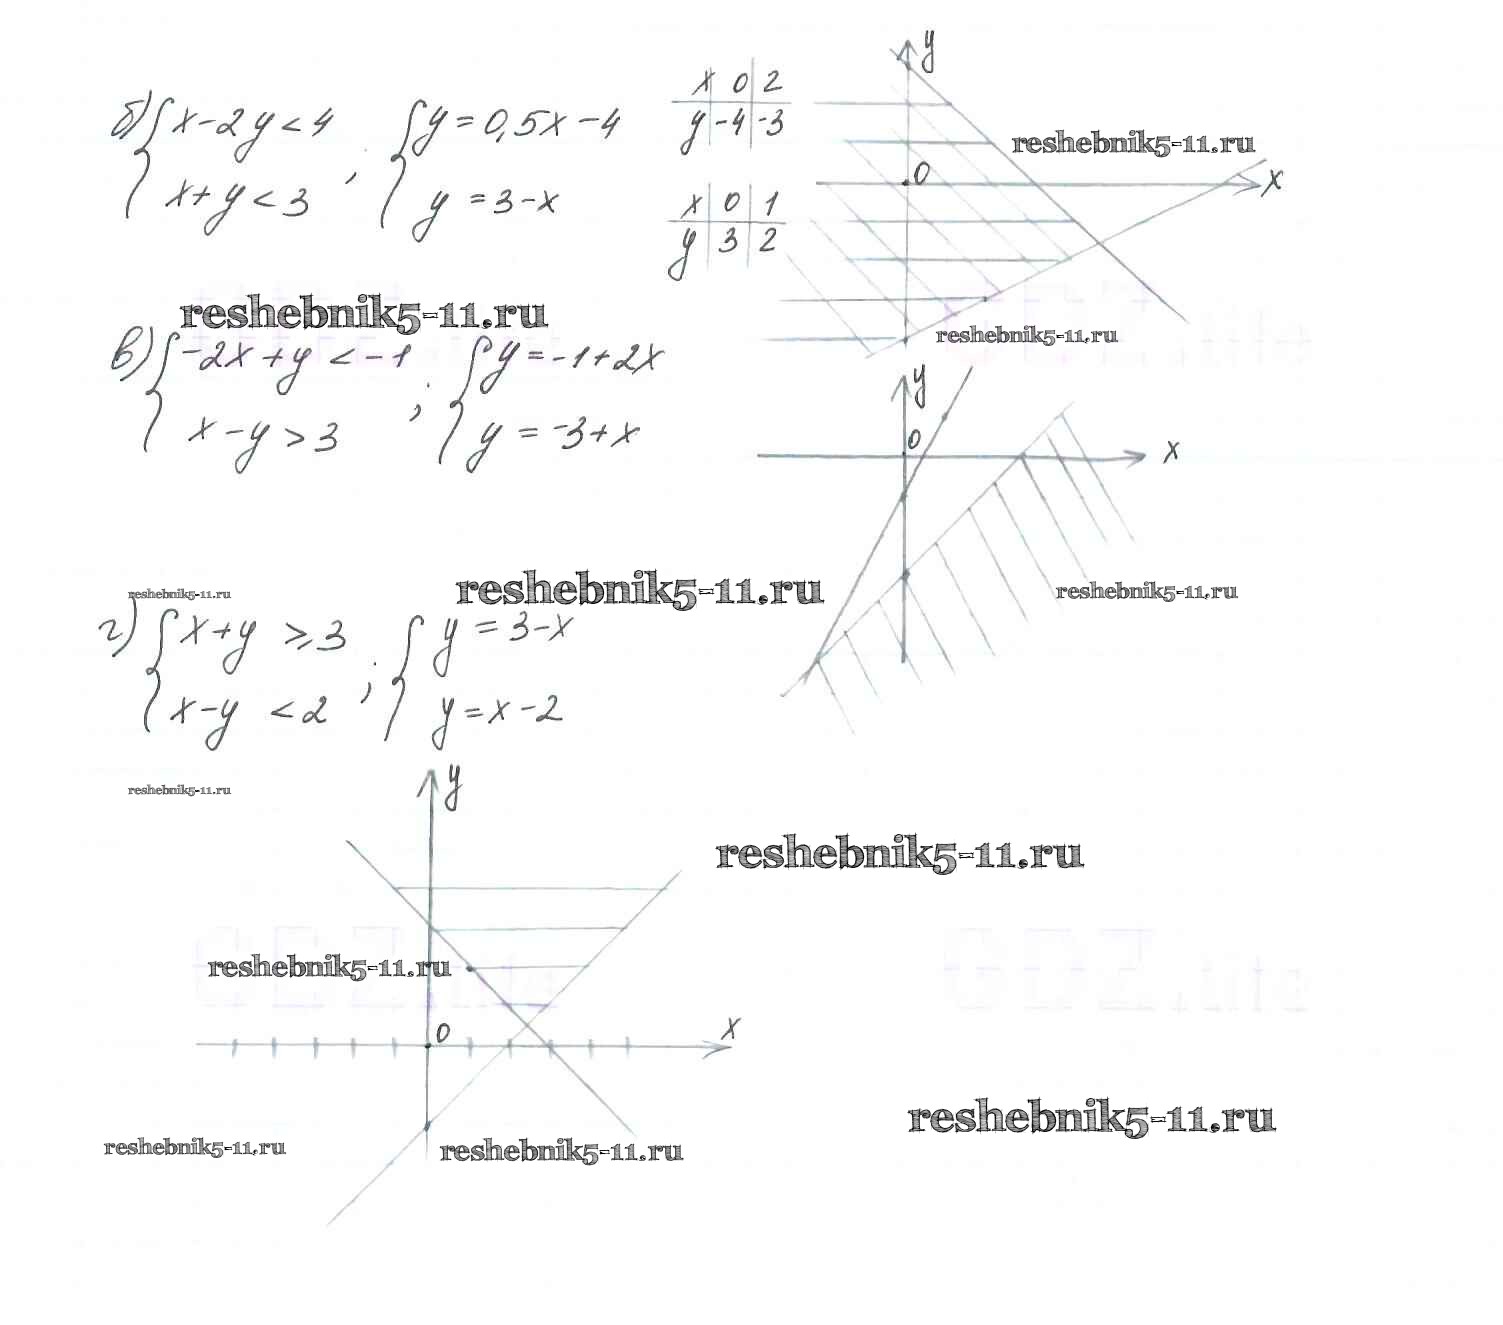 б) { x-2y<4 , { y=0,5x-4
x+y<3 y=3-x
x 0 2
y -4 -3
x 0 1
y 3 2
y
0
x
reshebnik5-11.ru
reshebnik5-11.ru
reshebnik5-11.ru
в) { -2x+y<-1 ; { y=-1+2x
x-y>3 y=-3+x
y
0
x
reshebnik5-11.ru
reshebnik5-11.ru
reshebnik5-11.ru
г) { x+y ≥3 ; { y=3-x
x-y <2 y=x-2
reshebnik5-11.ru
y
reshebnik5-11.ru
reshebnik5-11.ru
0
x
reshebnik5-11.ru
reshebnik5-11.ru
reshebnik5-11.ru